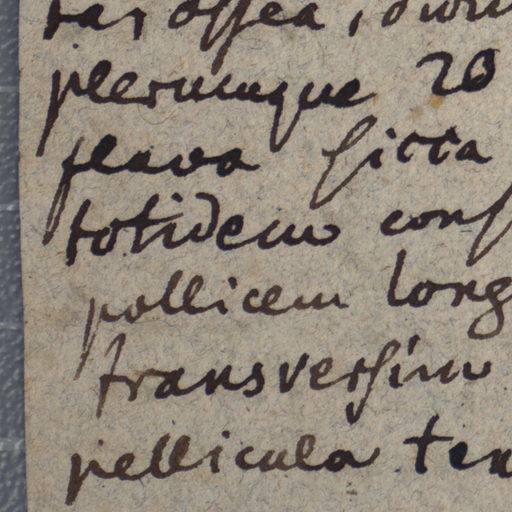 tas ossea,
plerumque 20
flava sicca
totidem cons
pollicem long
transversim
pellicula ten